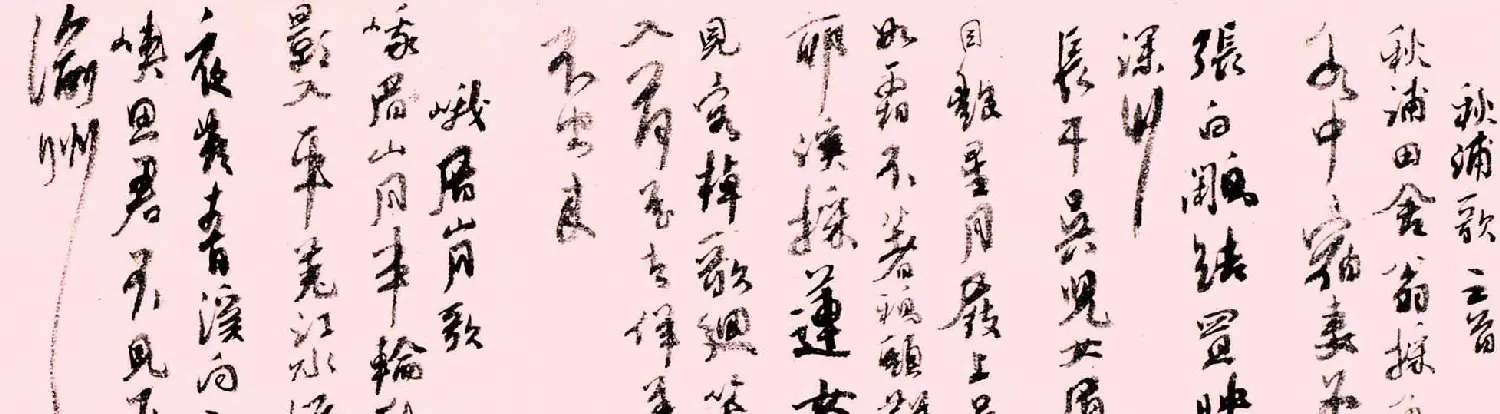 秋浦歌 二首
秋浦田舍翁採
水中宿妻子
張白鷴結罝映
深竹
長干吳兒女眉
目艷星月屐上足
如霜不著鴉頭襪
耶溪採蓮女
見客棹歌迴笑
入荷花去佯羞
不出來
峨眉山月歌
峨眉山月半輪秋
影入平羌江水流
夜發清溪向三
峽思君不見下
渝州